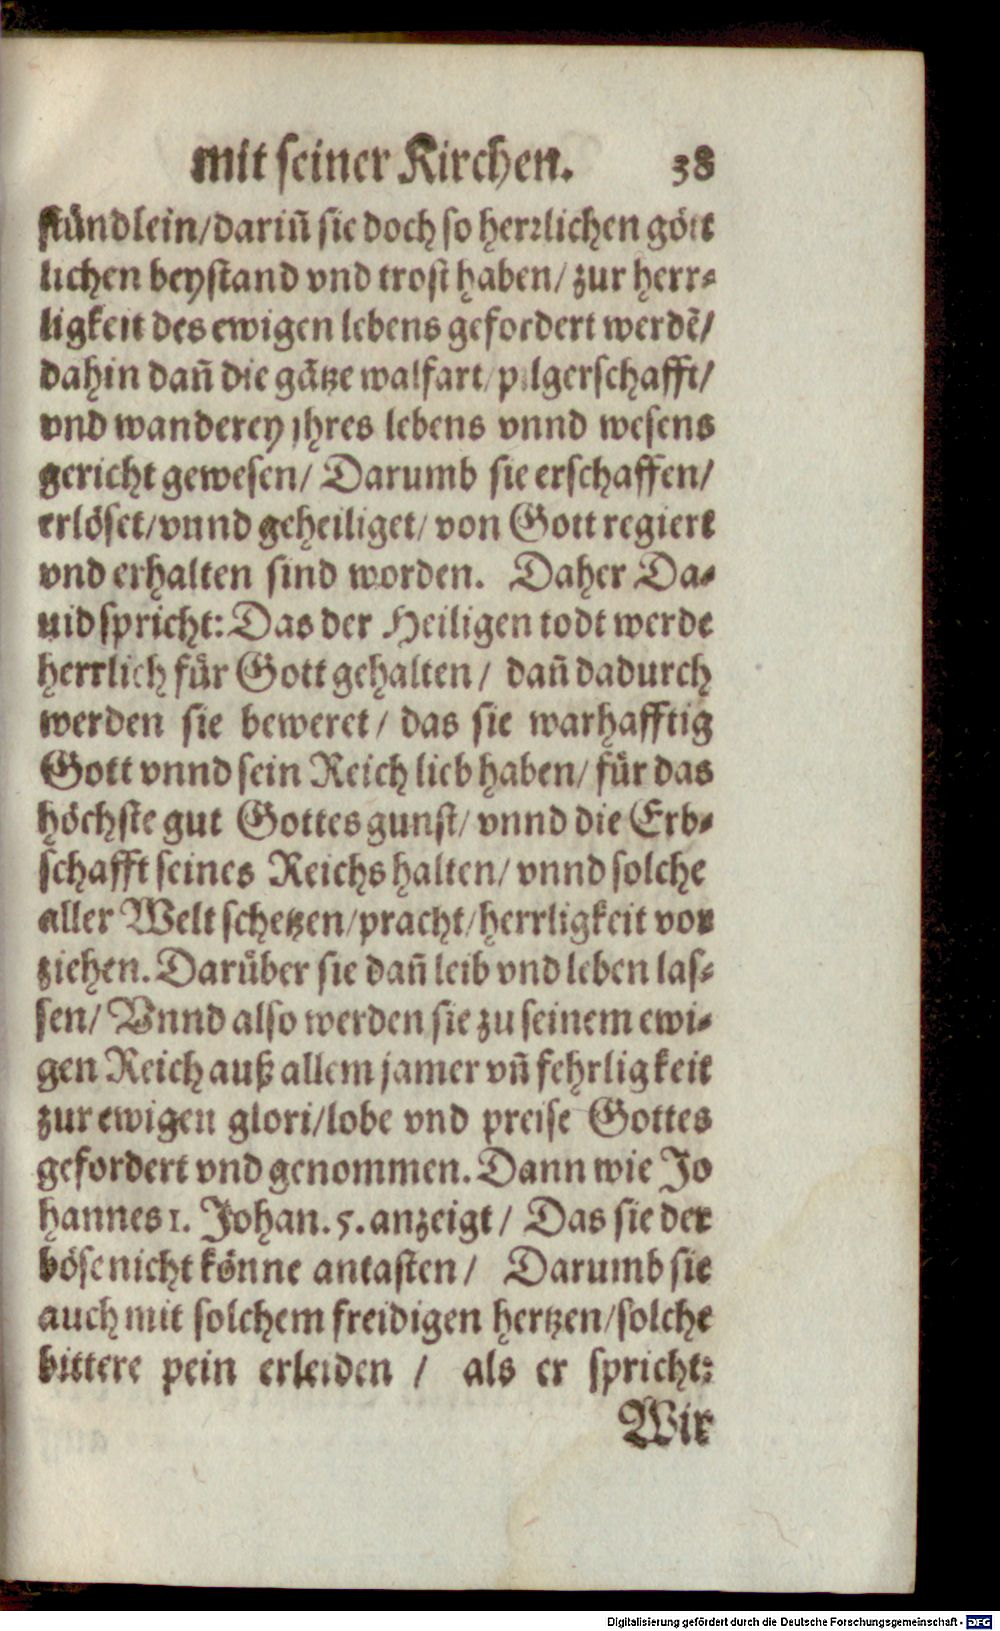 mit seiner Kirchen. 38
stündlein/dariñ sie doch so herꝛlichen gött
lichen beystand vnd trost haben/ zur herr-
ligkeit des ewigen lebens gefordert werdẽ/
dahin dañ die gãtze walfart/pilgerschafft/
vnd wanderey jhres lebens vnnd wesens
gericht gewesen/ Darumb sie erschaffen/
erlöset/vnnd geheiliget/ von Gott regiert
vnd erhalten sind worden. Daher Da-
uid spricht: Das der Heiligen todt werde
herrlich für Gott gehalten/ dañ dadurch
werden sie beweret/ das sie warhafftig
Gott vnnd sein Reich lieb haben/ für das
höchste gut Gottes gunst/ vnnd die Erb-
schafft seines Reichs halten/ vnnd solche
aller Welt schetzen/pracht/herrligkeit vor
ziehen. Darüber sie dañ leib vnd leben las-
sen/ Vnnd also werden sie zu seinem ewi-
gen Reich auß allem jamer vñ fehrligkeit
zur ewigen glori/lobe vnd preise Gottes
gefordert vnd genommen. Dann wie Jo
hannes 1. Johan. 5. anzeigt/ Das sie der
böse nicht könne antasten/ Darumb sie
auch mit solchem freidigen hertzen/solche
bittere pein erleiden / als er spricht:
Wir
Digitalisierung gefördert durch die Deutsche Forschungsgemeinschaft - DFG